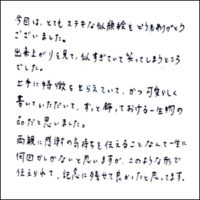 今回は、とてもステキな似顔絵をどうもありがとう
ございました。
出来上がりを見て、似すぎていて笑ってしまうところ
でした。
上手に特徴をとらえていて、かつ可愛らしく
書いていただいて、ずっと飾っておける一生物の
品だと思いました。
両親に感謝の気持ちを伝えることなんて一生に
何回かしかないと思いますが、このような形で
伝えられて、記念に残せて良かったと思ってます。